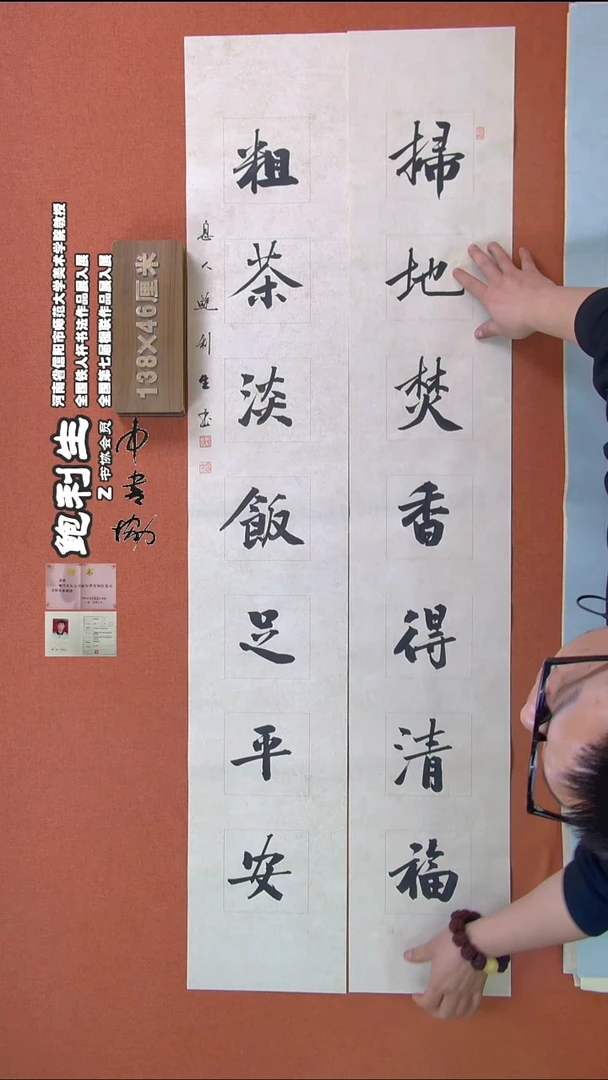 掃地焚香得清福
粗茶淡飯足平安
息人鲍利生书
138×46厘米
河南省信阳市师范大学美术学院教授
全国铁人杯书法作品展入展
全国第七届楹联作品展入展
鲍利生
书协会员
中书协